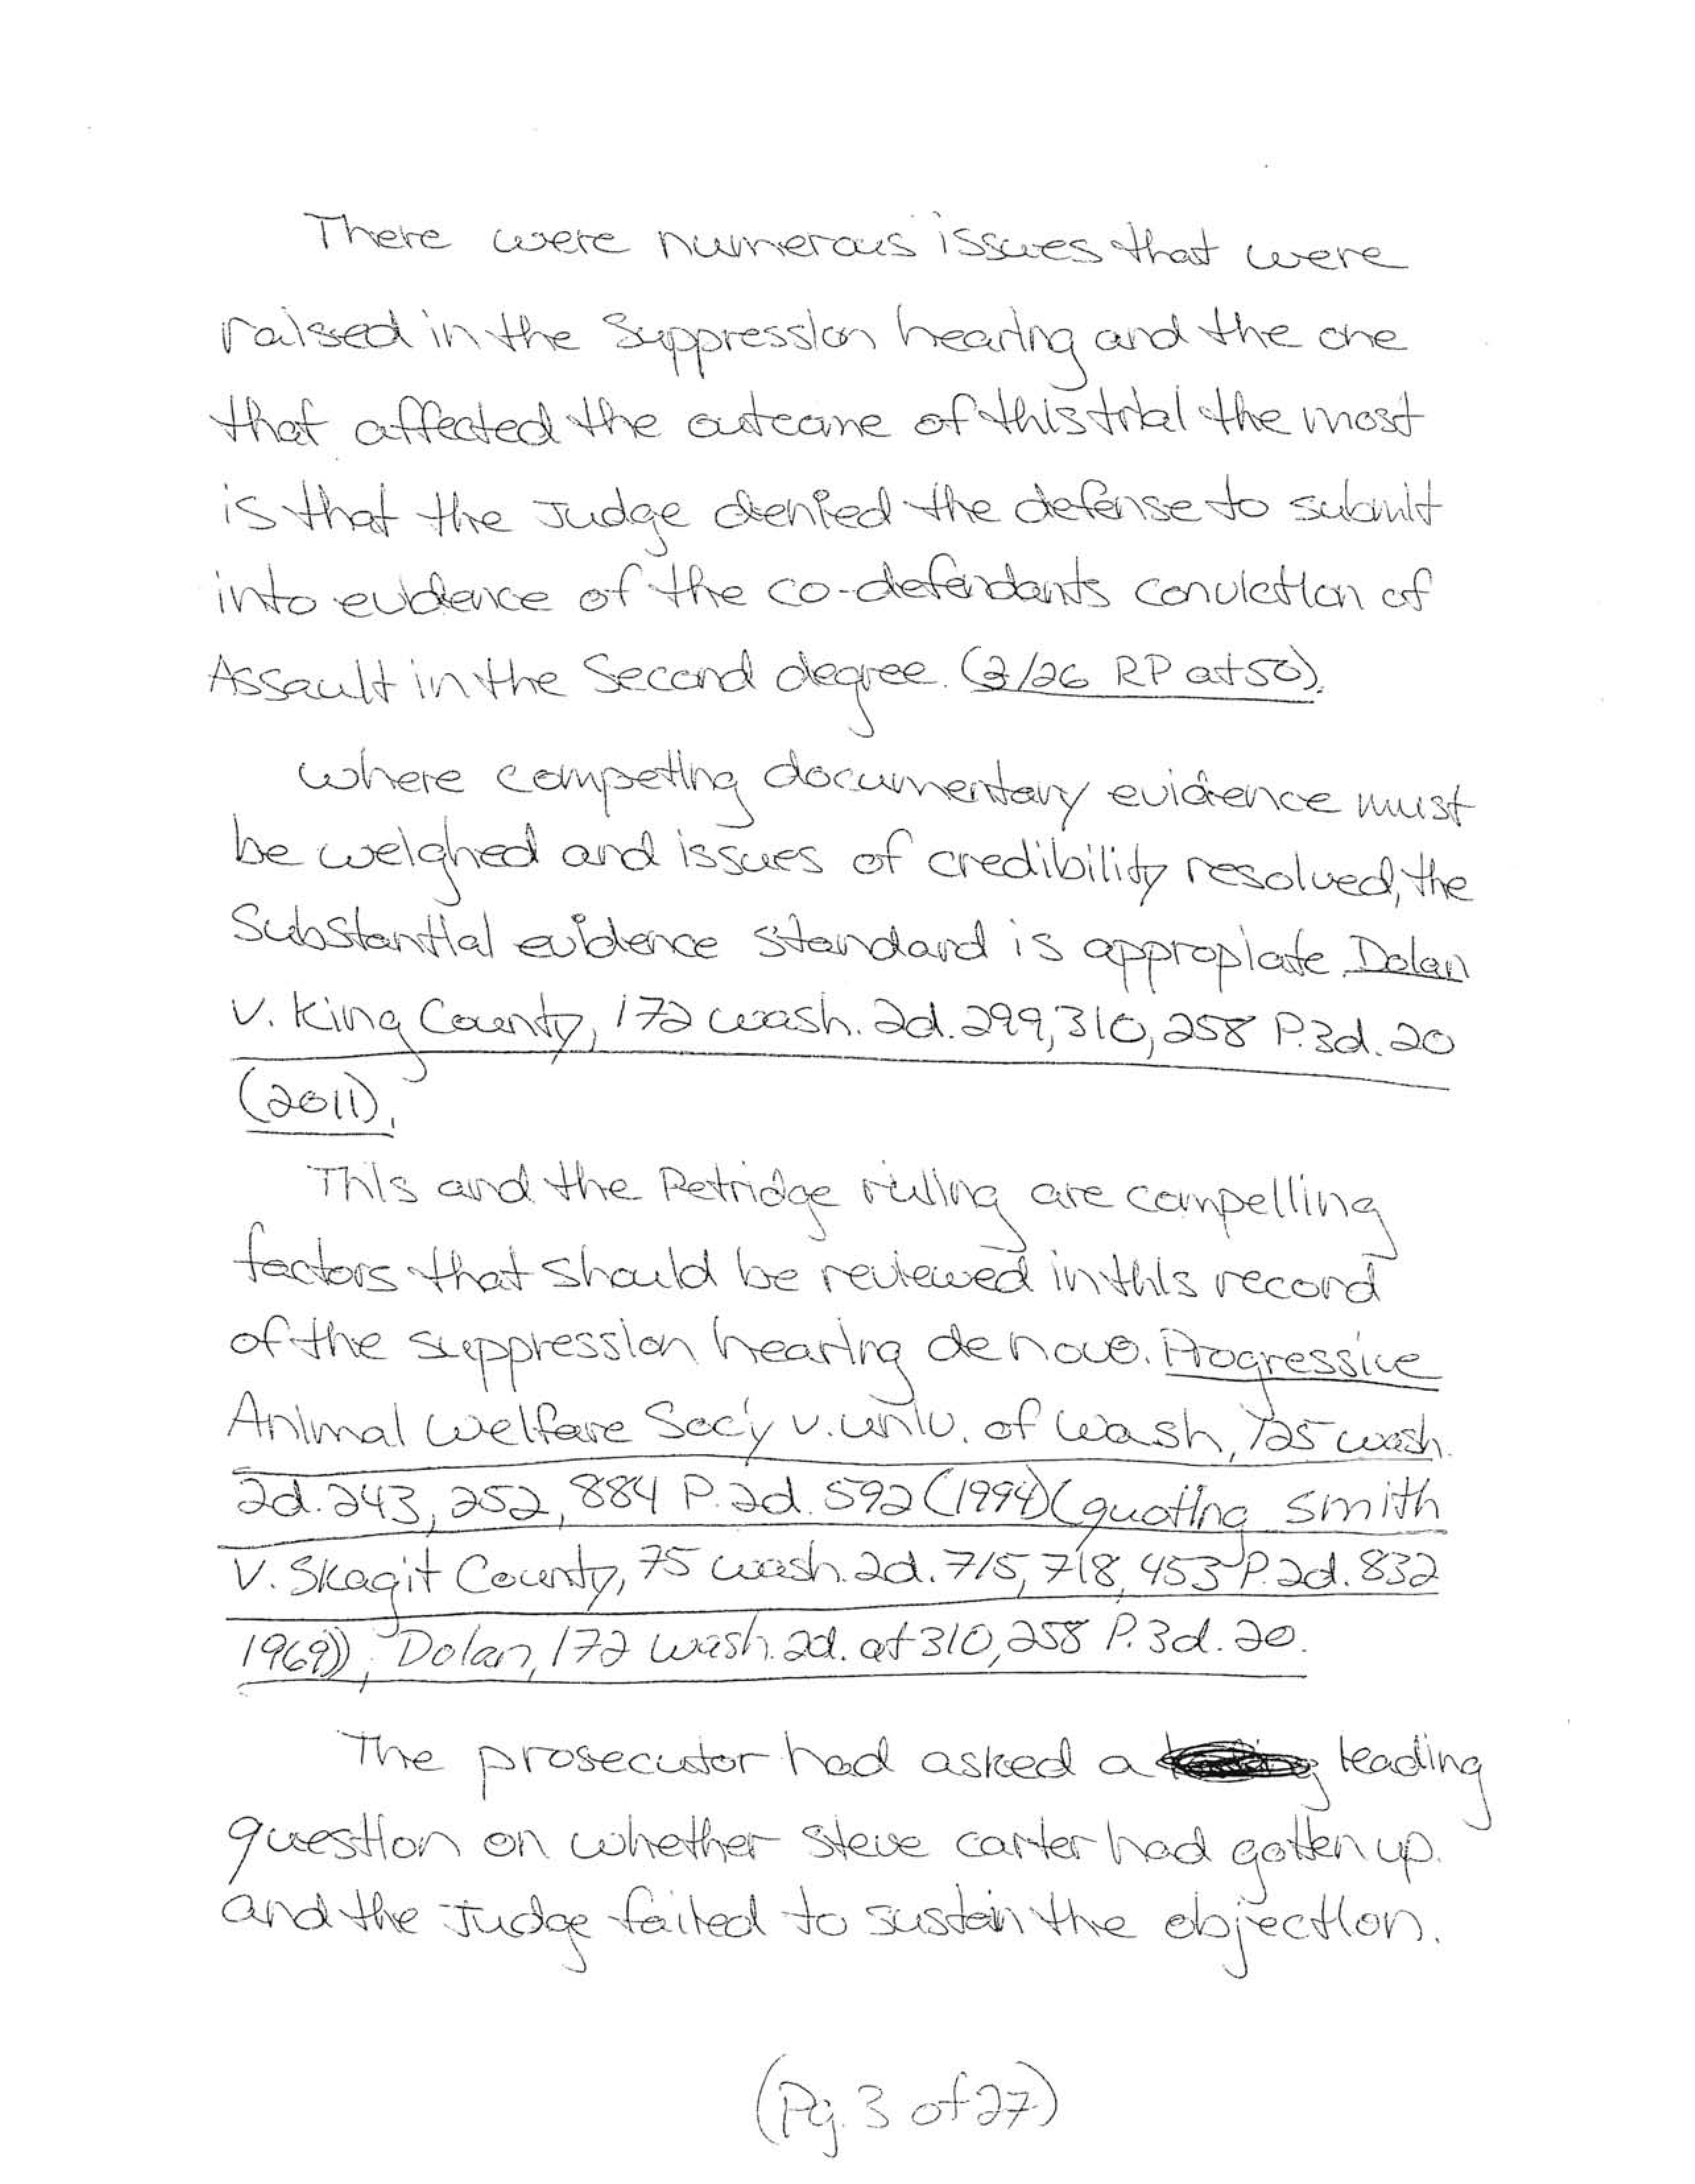 There were numerous issues that were
raised in the Suppression hearing and the one
that affected the outcome of this trial the most
is that the Judge denied the defense to submit
into evidence of the co-defendants conviction of
Assault in the Second degree. (2/26 RP at 50).
where competing documentary evidence must
be weighed and issues of credibility resolved, the
Substantial evidence standard is appropiate. Dolan
v. King County, 172 wash. 2d. 299, 310, 258 P.3d. 20
(2011).
This and the Petridge ruling are compelling
factors that should be reviewed in this record
of the suppression hearing de novo. Progressive
Animal Welfare Soc'y v. univ. of Wash, 125 wash.
2d. 243, 252, 884 P.2d. 592 (1994) (quoting Smith
V. Skagit County, 75 wash. 2d. 715, 718, 453 P.2d. 832
1969)); Dolan, 172 wash. 2d. at 310, 258 P.3d. 20.
The prosecutor had asked a leading
question on whether Steve carter had gotten up.
and the Judge failed to sustain the objection.
(Pg. 3 of 27)